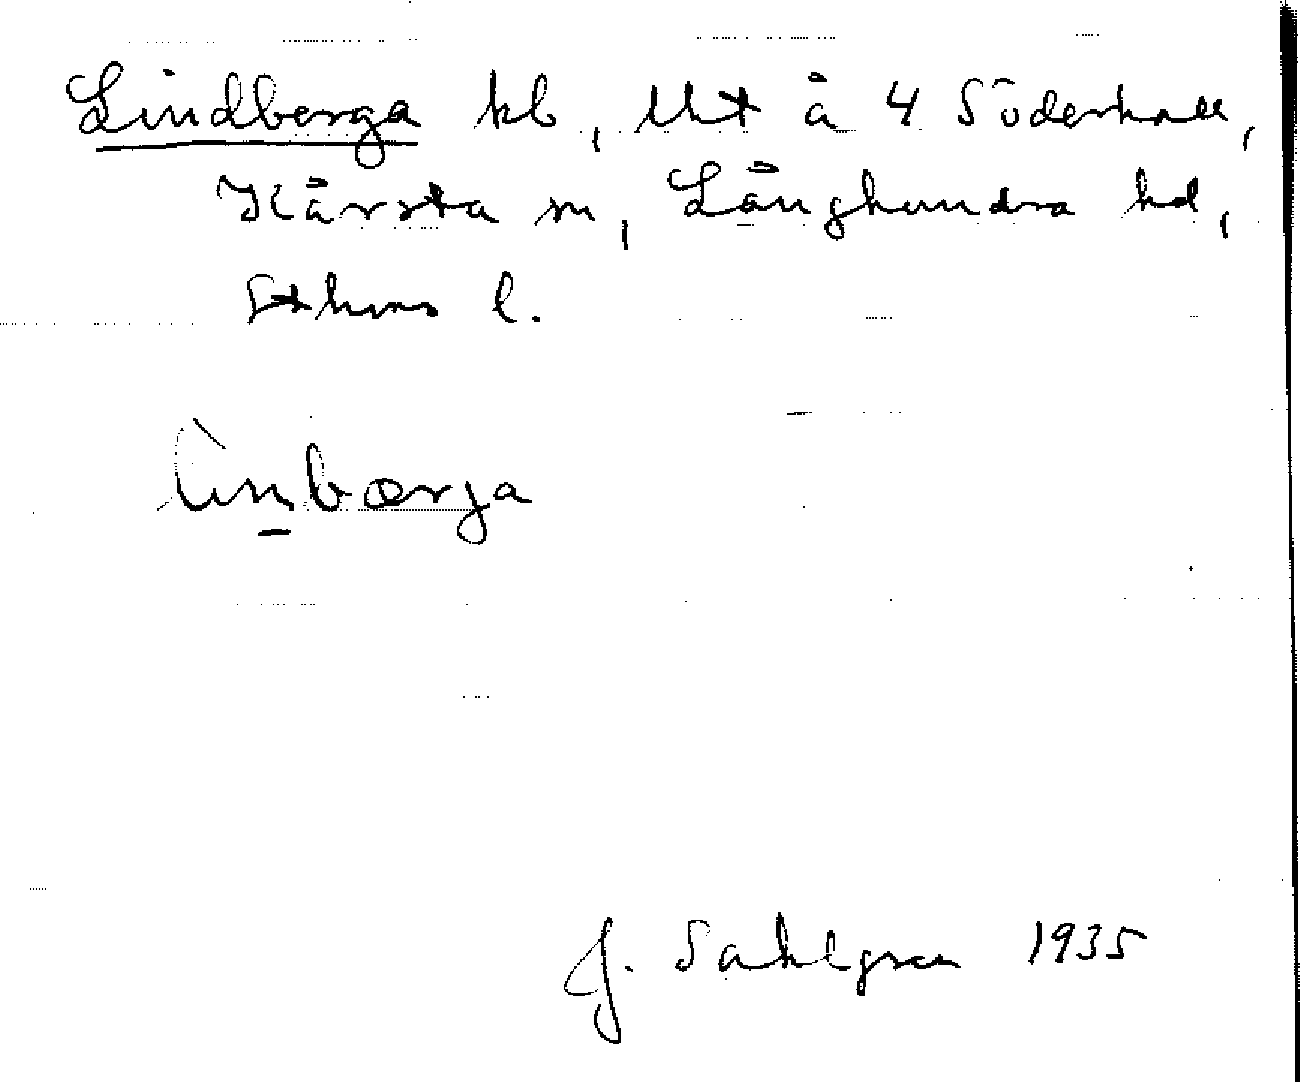 Lindberga hb, Utå 4 Söderhall,
Kårsta sn, Långhundra hd,
Sthms l.
lìn̲bærja
J. Sahlgren 1935